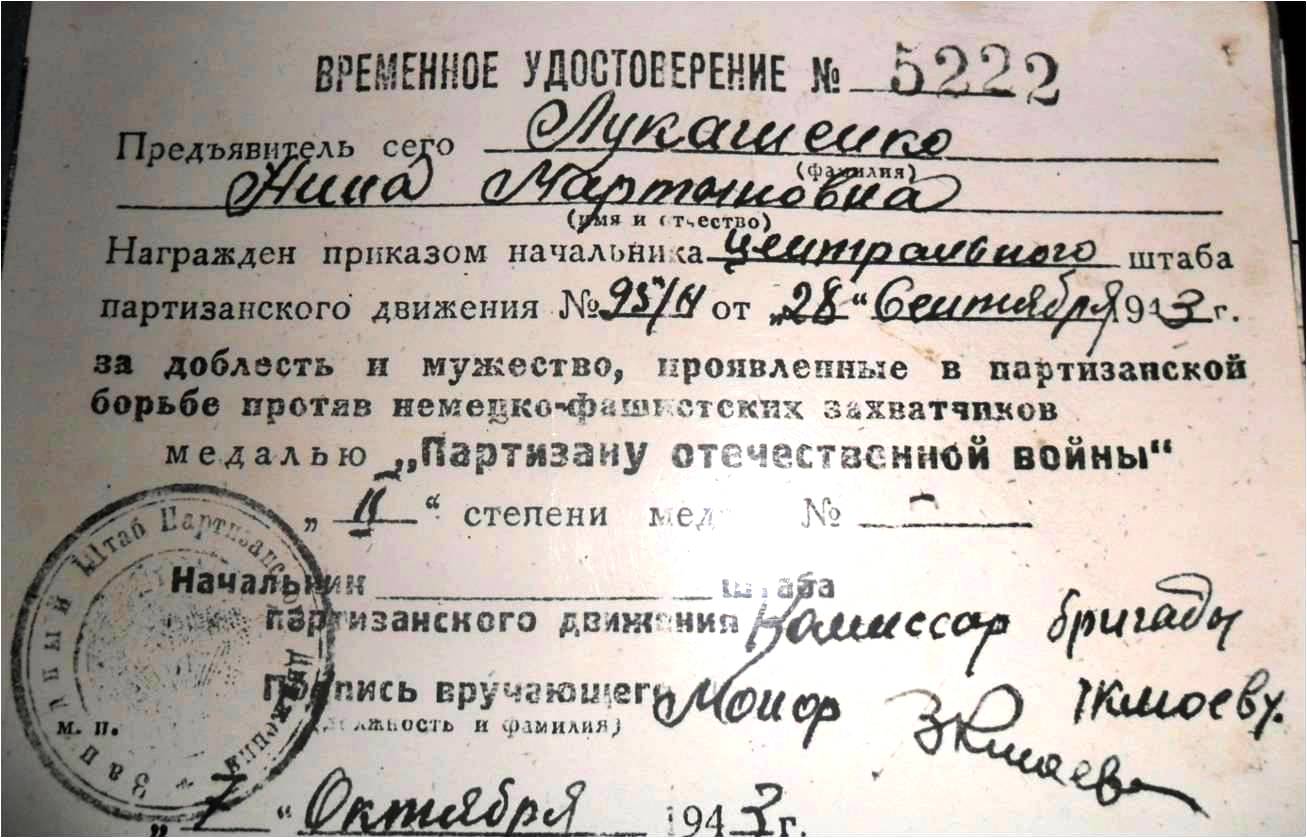 ВРЕМЕННОЕ УДОСТОВЕРЕНИЕ № 5222
Предъявитель сего Лукашенко
(фамилия)
Нина Мартыновна
(имя и отчество)
Награжден приказом начальника центрального штаба
партизанского движения № 95/н от „28“ Сентября 1943 г.
за доблесть и мужество, проявленные в партизанской
борьбе против немецко-фашистских захватчиков
медалью „Партизану отечественной войны“
„II“ степени мед №
Начальник штаба
партизанского движения Комиссар бригады
Подпись вручающего Майор
(должность и фамилия)
м. п.
Западный Штаб Партизанского Движения
„7“ Октября 1943 г.